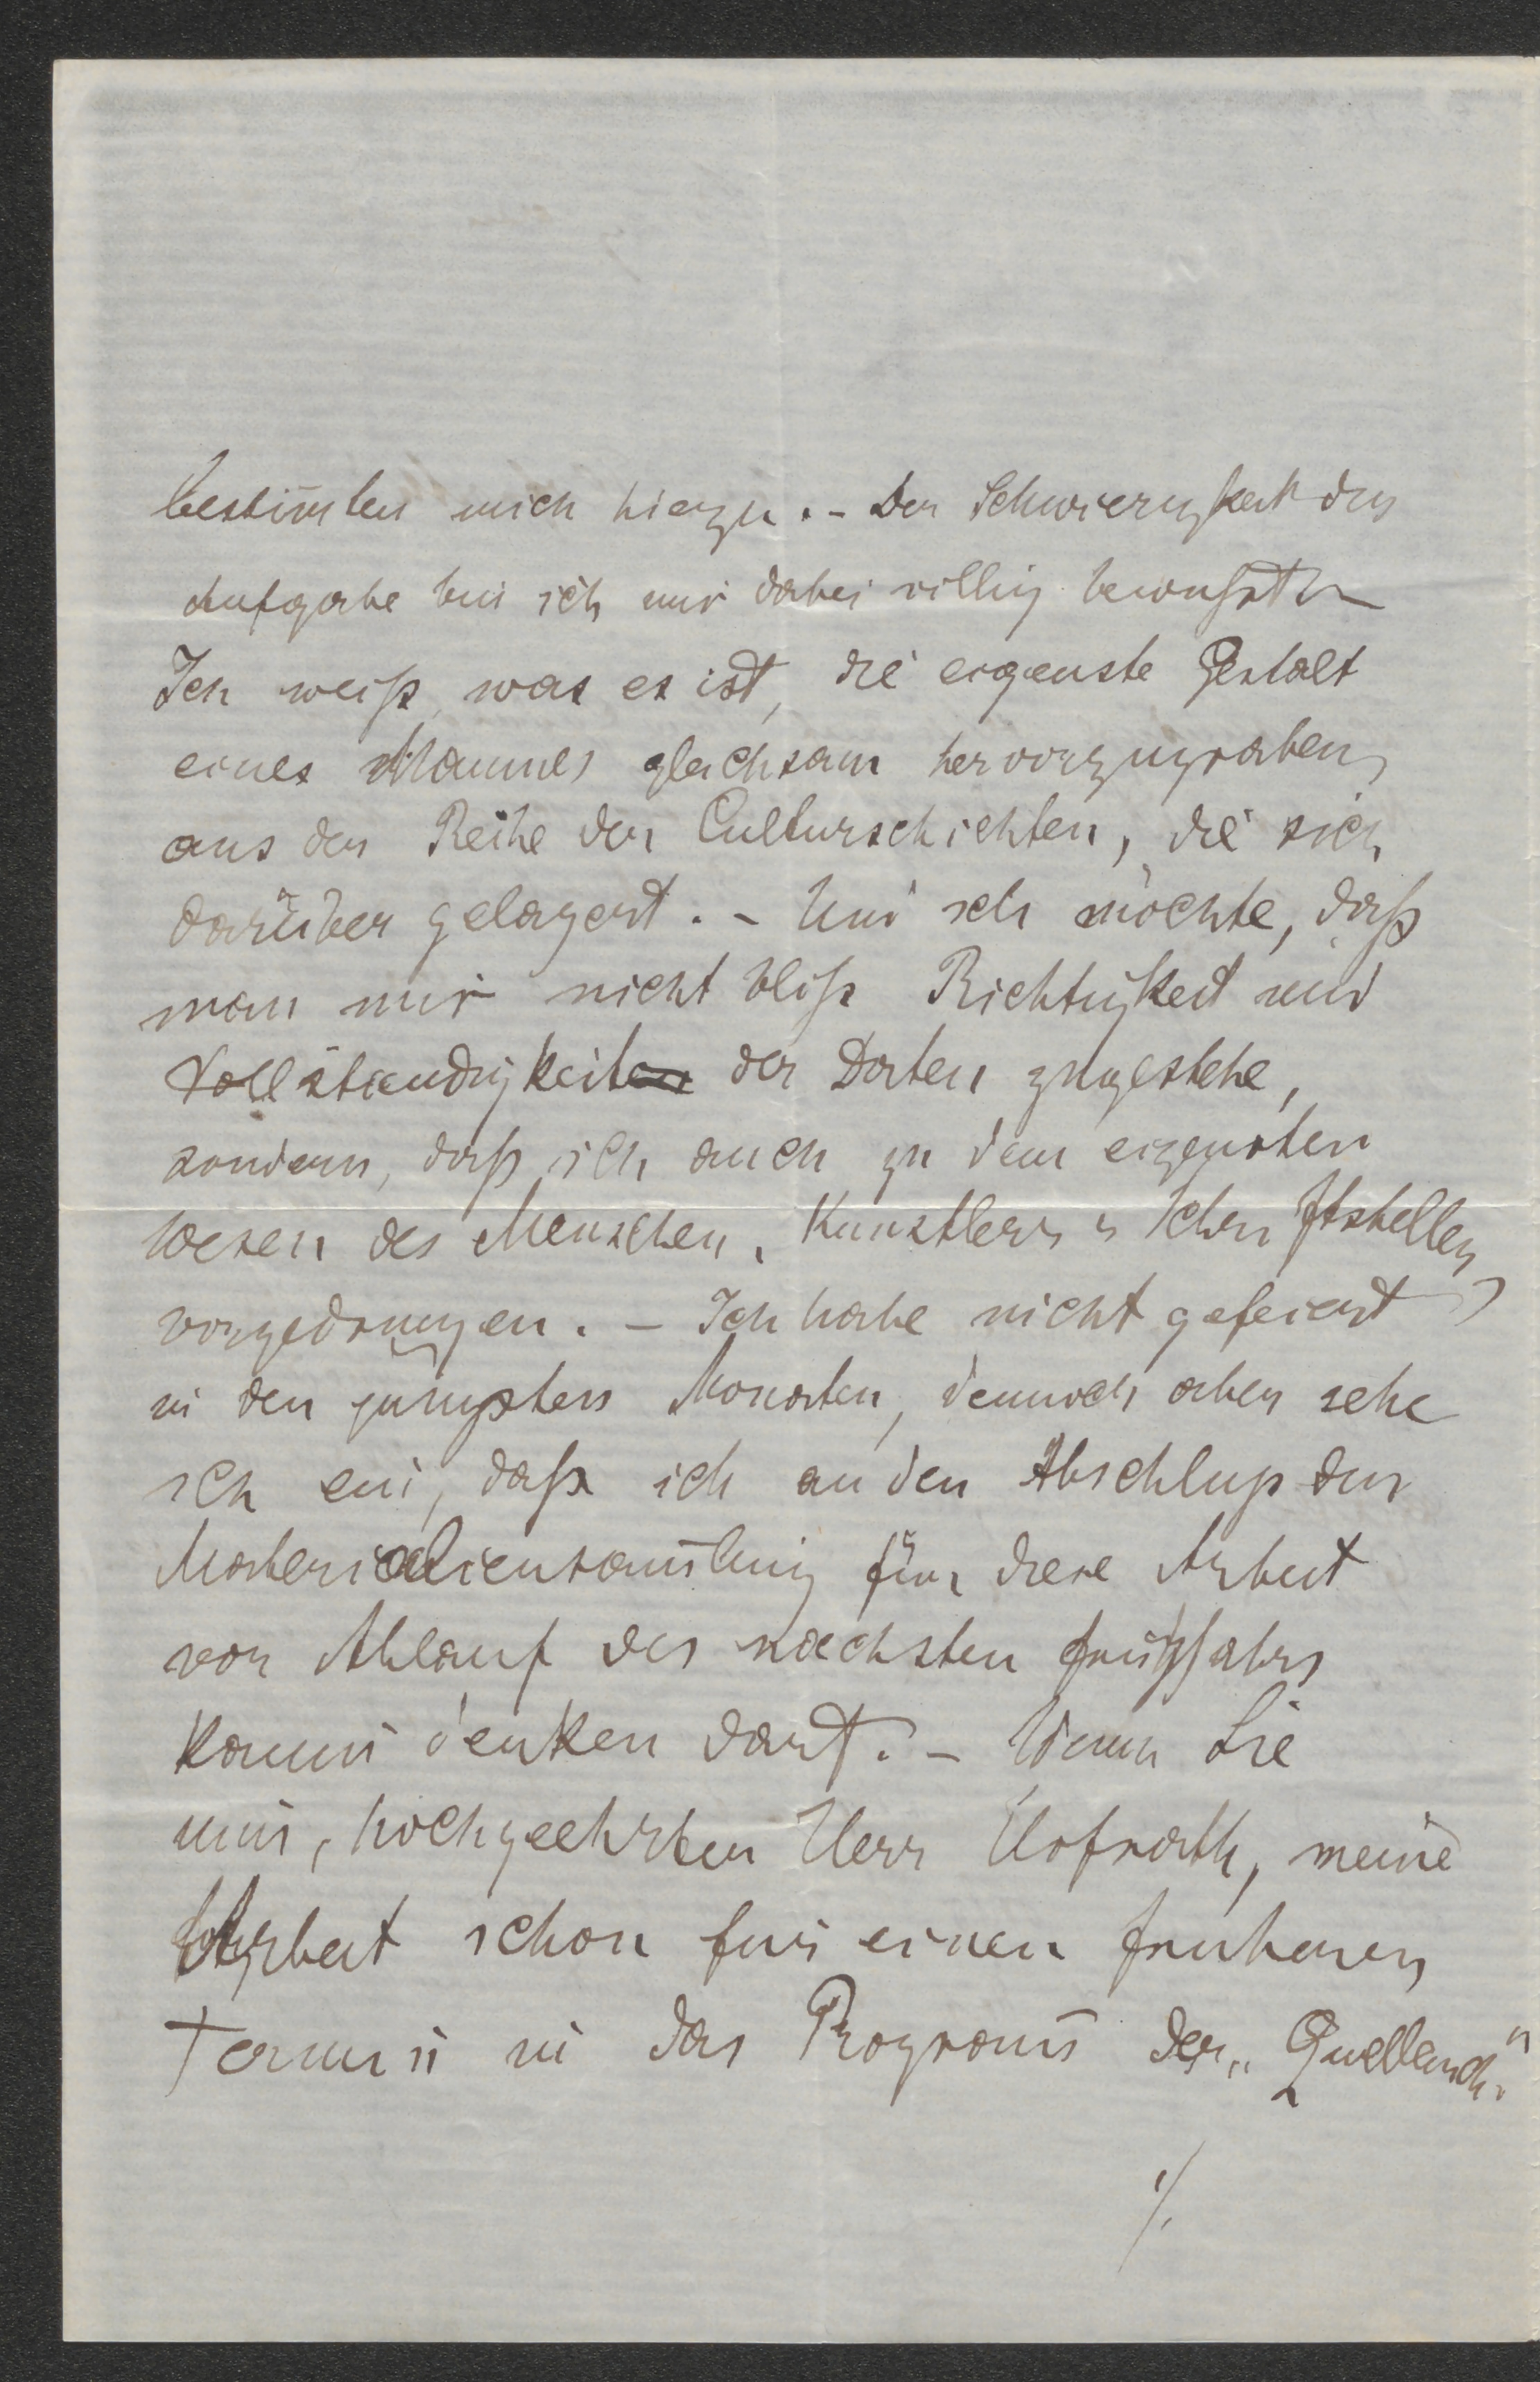 bestim̄ten mich hierzu. - Der Schwierigkeit der
Aufgabe bin ich mir dabei völlig bewußt -
Ich weiß, was es ist, die eigenste Gestalt
eines Mannes gleichsam hervorzugraben
aus der Reihe der Culturschichten, die sich
darüber gelagert. - Und ich möchte, daß
man mir nicht bloß Richtigkeit und
Vollständigkeit der Daten zugestehe,
sondern, daß ich auch zu dem eigensten
Wesen des Menschen, Künstlers u Schriftstellers
vorgedrungen. - Ich habe nicht gefeiert
in den jüngsten Monaten, dennoch aber sehe
ich ein, daß ich an den Abschluß der
Materialiensam̄lung für diese Arbeit
vor Ablauf des nächsten Frühjahrs
kaum denken darf. - Wenn Sie
nun, hochgeehrter Herr Hofrath, meine
Arbeit schon für einen früheren
Termin in das Program̄ der „Quellensch.“
./.